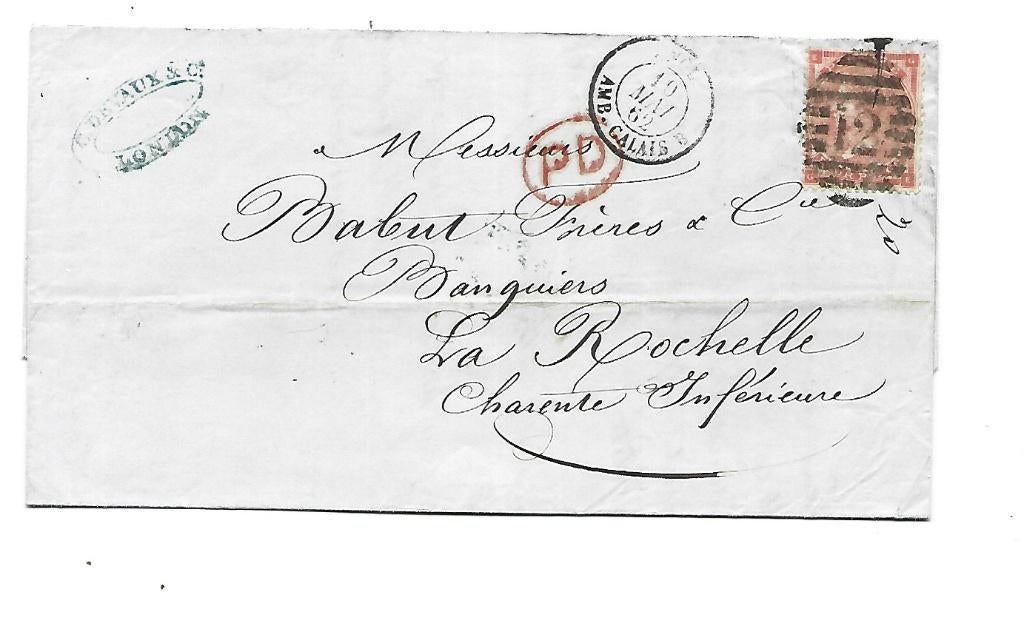 DEVAUX & Co.
LONDON
10
MAI
62
AMB. CALAIS B
PD
12
Messieurs
Babut Frères & Cie
Banquiers
La Rochelle
Charente Inférieure